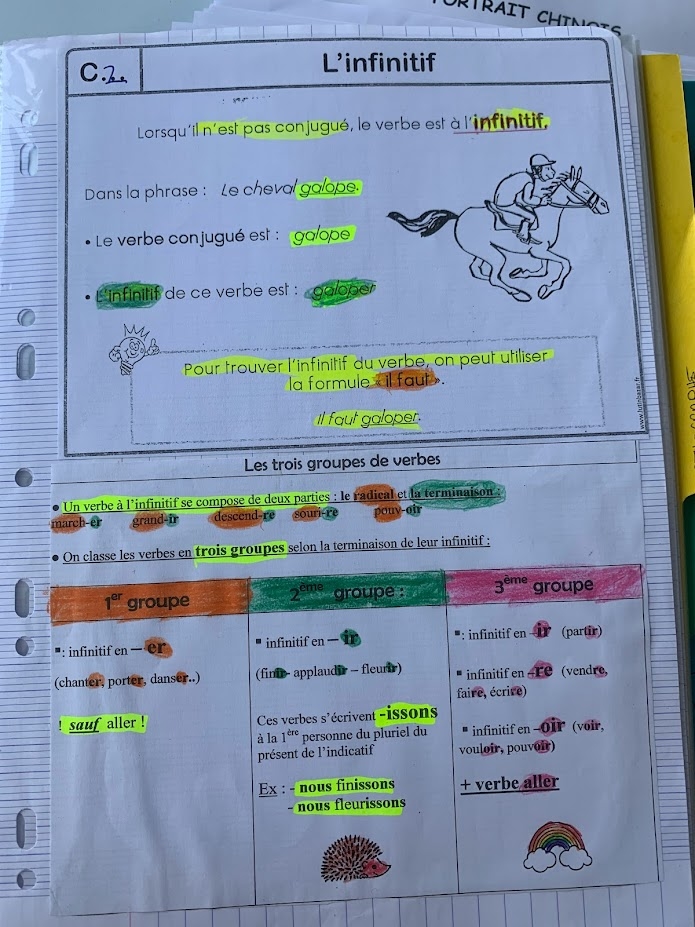 PORTRAIT CHINOIS
C.
L'infinitif
Lorsqu'il n'est pas conjugué, le verbe est à l'infinitif.
Dans la phrase : Le cheval galope.
• Le verbe conjugué est : galope
• L'infinitif de ce verbe est : galoper
Pour trouver l'infinitif du verbe, on peut utiliser
la formule « il faut ».
Il faut galoper.
www.lutinbazar.fr
Les trois groupes de verbes
• Un verbe à l'infinitif se compose de deux parties : le radical et la terminaison :
march-er grand-ir descend-re souri-re pouv-oir
• On classe les verbes en trois groupes selon la terminaison de leur infinitif :
1er groupe
▪: infinitif en – er
(chanter, porter, danser..)
! sauf aller !
2ème groupe :
▪ infinitif en – ir
(finir- applaudir – fleurir)
Ces verbes s'écrivent -issons
à la 1ère personne du pluriel du
présent de l'indicatif
Ex : - nous finissons
- nous fleurissons
3ème groupe
▪: infinitif en -ir (partir)
▪ infinitif en -re (vendre,
faire, écrire)
▪ infinitif en -oir (voir,
vouloir, pouvoir)
+ verbe aller